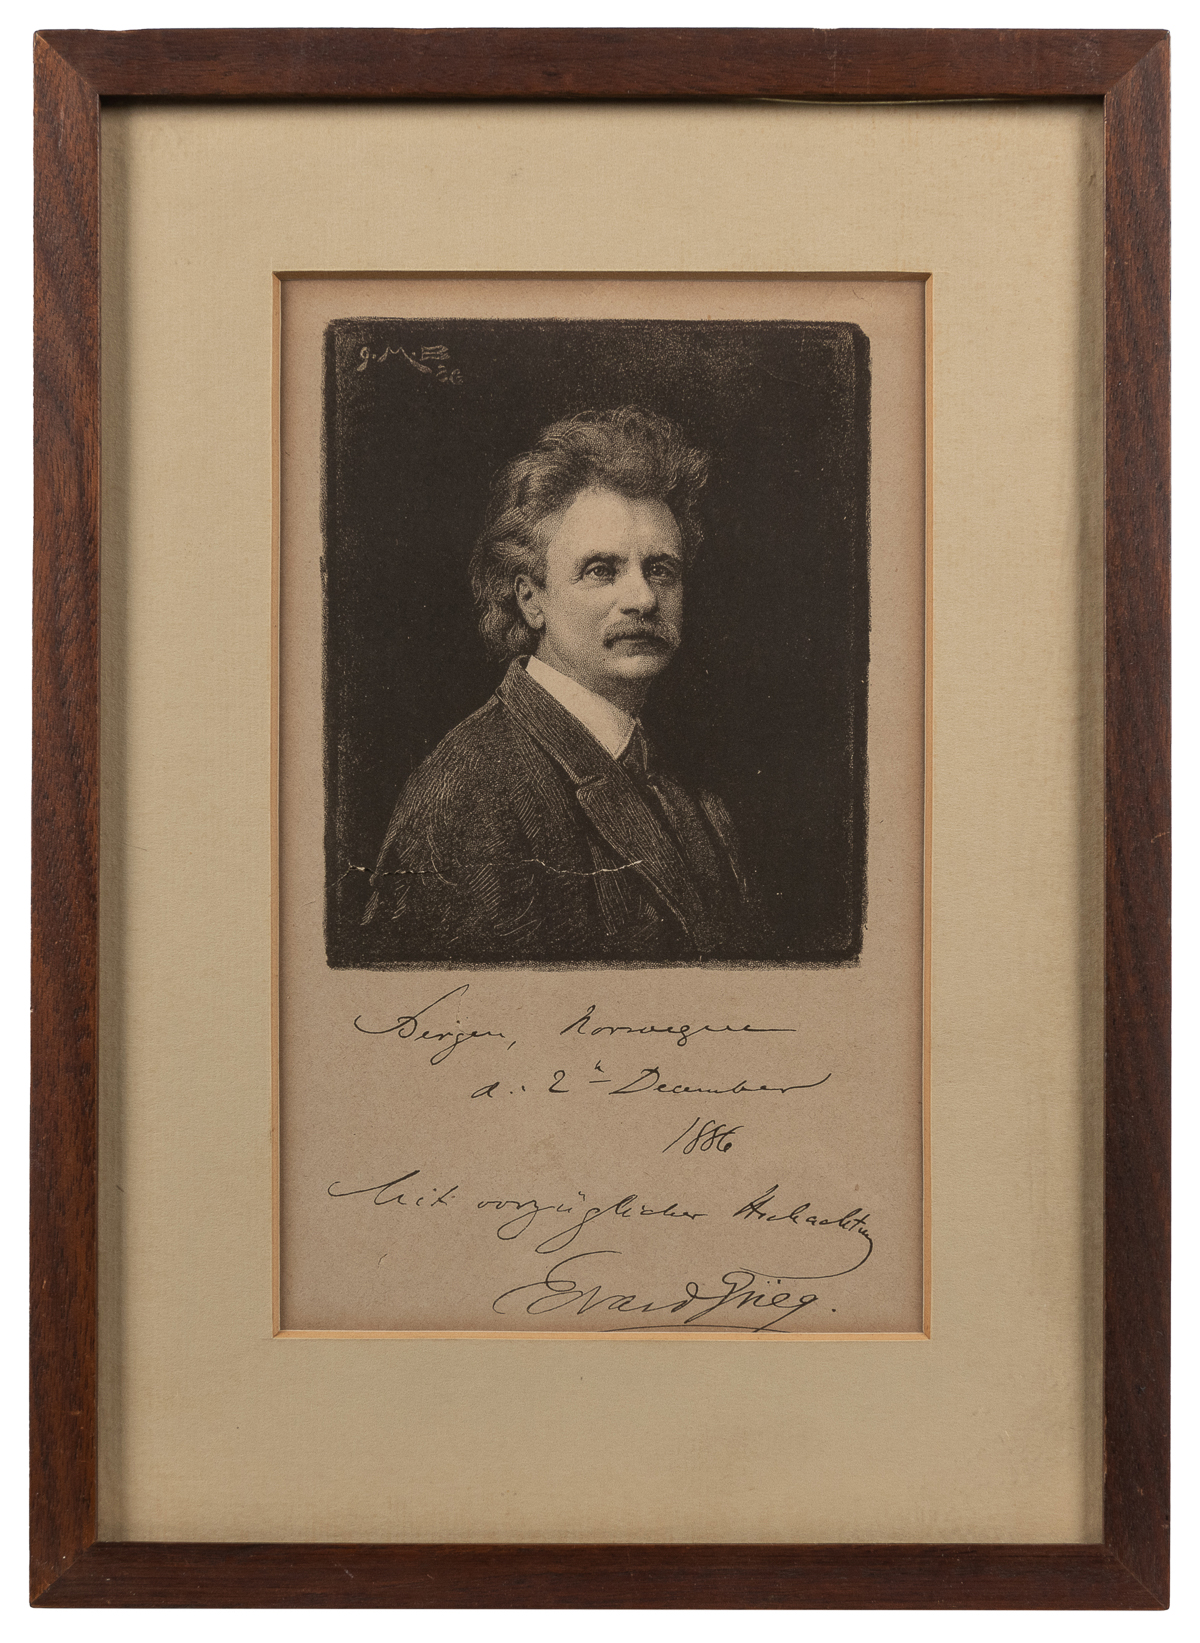 J.M.B
'86
Bergen, Norwegen
d. 2n December
1886
Mit vorzüglicher Hochachtung
Edvard Grieg.